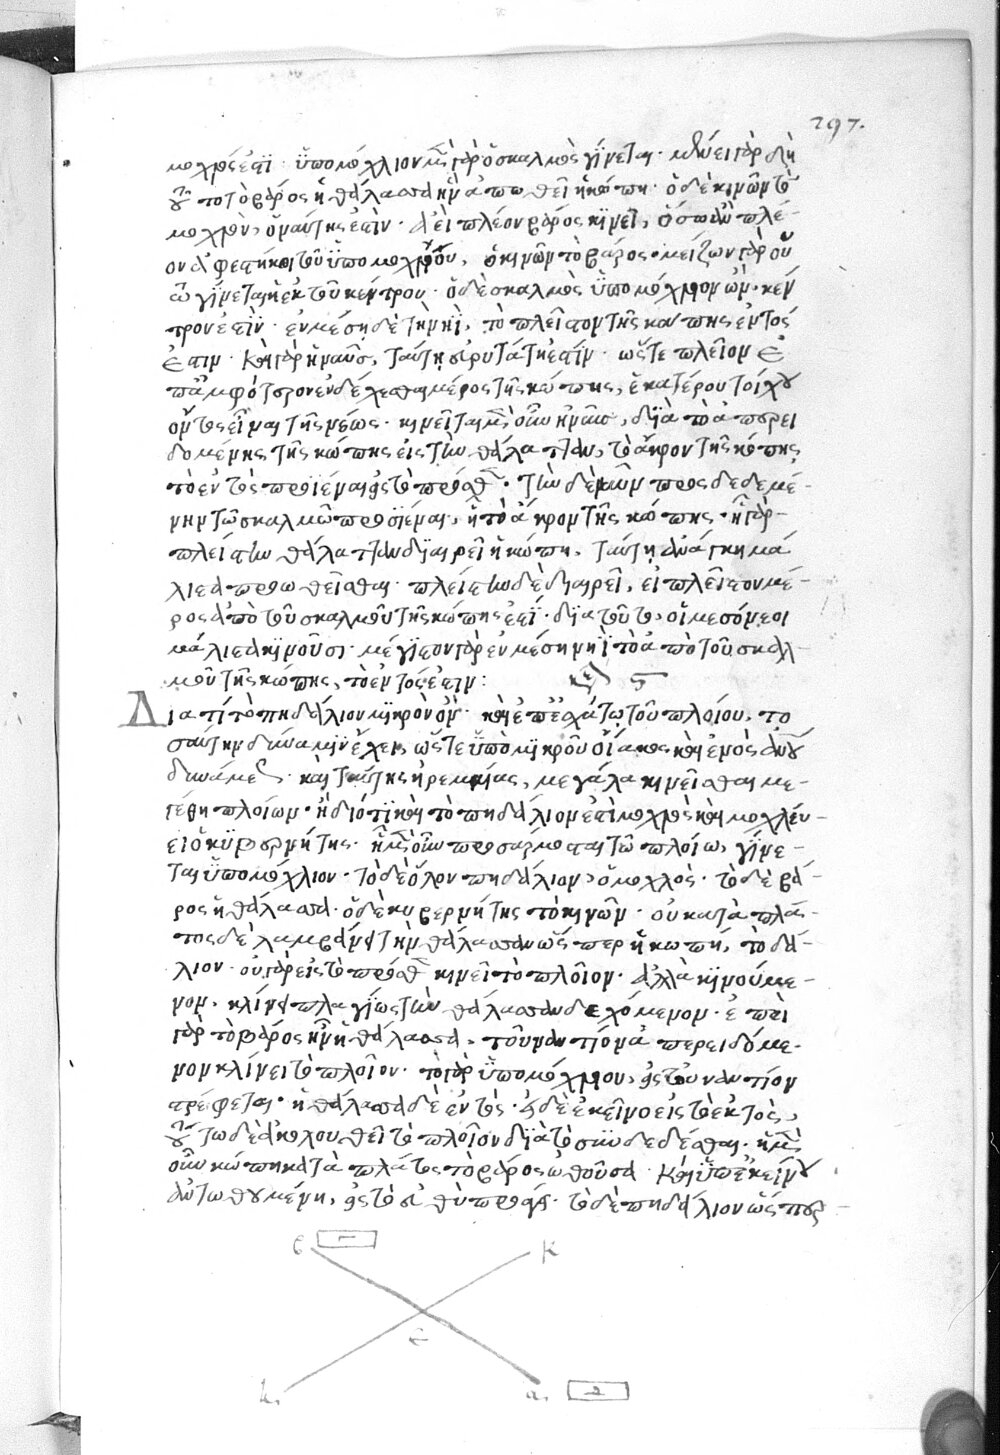 297.
μοχλός ἐστὶ· ὑπομόχλιον μὲν γὰρ ὁ σκαλμὸς γίνεται· μένει γὰρ δὴ
οὗτος τὸ βάρος ἡ θάλασσα ἣν ἀπωθεῖ ἡ κώπη· ὁ δὲ κινῶν τὸν
μοχλὸν, ὁ ναύτης ἐστὶν· ἀεὶ πλέον βάρος κινεῖ, ὅσῳ ἂν πλέ-
ον ἀφεστήκῃ τοῦ ὑπομοχλίου, ὁ κινῶν τὸ βάρος· μείζων γὰρ οὕ
τω γίνεται ἡ ἐκ τοῦ κέντρου· ὁ δὲ σκαλμὸς ὑπομόχλιον ὢν· κέν
τρον ἐστὶν· ἐν μέσῃ δὲ τῇ νηῒ, τὸ πλεῖστον τῆς κώπης ἐντός
ἐστιν· καὶ γὰρ ἡ ναῦς, ταύτῃ εὐρυτάτη ἐστὶν· ὥστε πλεῖον ἐ
π᾽ ἀμφότερον ἐνδέχεσθαι μέρος τῆς κώπης, ἑκατέρου τοίχου
ἐντὸς εἶναι τῆς νεώς· κινεῖται μὲν οὖν ἡ ναῦς, διὰ τὸ ἀπερει
δομένης τῆς κώπης εἰς τὴν θάλατταν, τὸ ἄκρον τῆς κώπης
τὸ ἐντὸς προϊέναι εἰς τὸ πρόσθεν· τὴν δὲ ναῦν προσδεδεμέ-
νην τῷ σκαλμῷ προϊέναι, ᾗ τὸ ἄκρον τῆς κώπης· ᾗ γὰρ-
πλείστην θάλατταν διαιρεῖ ἡ κώπη, ταύτῃ ἀνάγκη μά
λιστα προωθεῖσθαι· πλείστην δὲ διαιρεῖ, ᾗ πλεῖστον μέ-
ρος ἀπὸ τοῦ σκαλμοῦ τῆς κώπης ἐστὶ· διὰ τοῦτο, οἱ μεσόνεοι
μάλιστα κινοῦσι· μέγιστον γὰρ ἐν μέσῃ νηῒ τὸ ἀπὸ τοῦ σκαλ-
μοῦ τῆς κώπης, τὸ ἐντός ἐστιν:
Διατί τὸ πηδάλιον μικρὸν ὂν· καὶ ἐπ᾽ ἐσχάτῳ τοῦ πλοίου, το
σαύτην δύναμιν ἔχει, ὥστε ὑπὸ μικροῦ οἴακος καὶ ἑνὸς ἀνθρώπου
δυνάμεως· καὶ ταύτης ἠρεμαίας, μεγάλα κινεῖσθαι με-
γέθη πλοίων· ἢ διότι καὶ τὸ πηδάλιον ἐστὶ μοχλὸς καὶ μοχλεύ-
ει ὁ κυβερνήτης· ᾗ μὲν οὖν προσήρμοσται τῷ πλοίῳ, γίνε-
ται ὑπομόχλιον· τὸ δὲ ὅλον πηδάλιον, ὁ μοχλός· τὸ δὲ βά-
ρος ἡ θάλασσα· ὁ δὲ κυβερνήτης τὸ κινῶν· οὐ κατὰ πλά-
τος δὲ λαμβάνει τὴν θάλασσαν ὥσπερ ἡ κώπη, τὸ δά-
λιον· οὐ γὰρ εἰς τὸ πρόσθεν κινεῖ τὸ πλοῖον· ἀλλὰ κινούμε-
νον, κλίνει πλαγίως τὴν θάλασσαν δεχόμενον· ἐπεὶ
γὰρ τὸ βάρος ἦν ἡ θάλασσα, τοὐναντίον ἀπερειδόμε-
νον κλίνει τὸ πλοῖον· τὸ γὰρ ὑπομόχλιον, εἰς τοὐναντίον
στρέφεται· ἡ θάλασσα δὲ ἐντὸς· εἰ δὲ ἐκεῖνο εἰς τὸ ἐκτὸς,
τούτῳ δὲ ἀκολουθεῖ τὸ πλοῖον διὰ τὸ συνδεδέσθαι· ἡ μὲν
οὖν κώπη κατὰ πλάτος τὸ βάρος ὠθοῦσα· καὶ ὑπ᾽ ἐκείνου
ἀντωθουμένη, εἰς τὸ εὐθὺ προάγει· τὸ δὲ πηδάλιον ὥσπερ